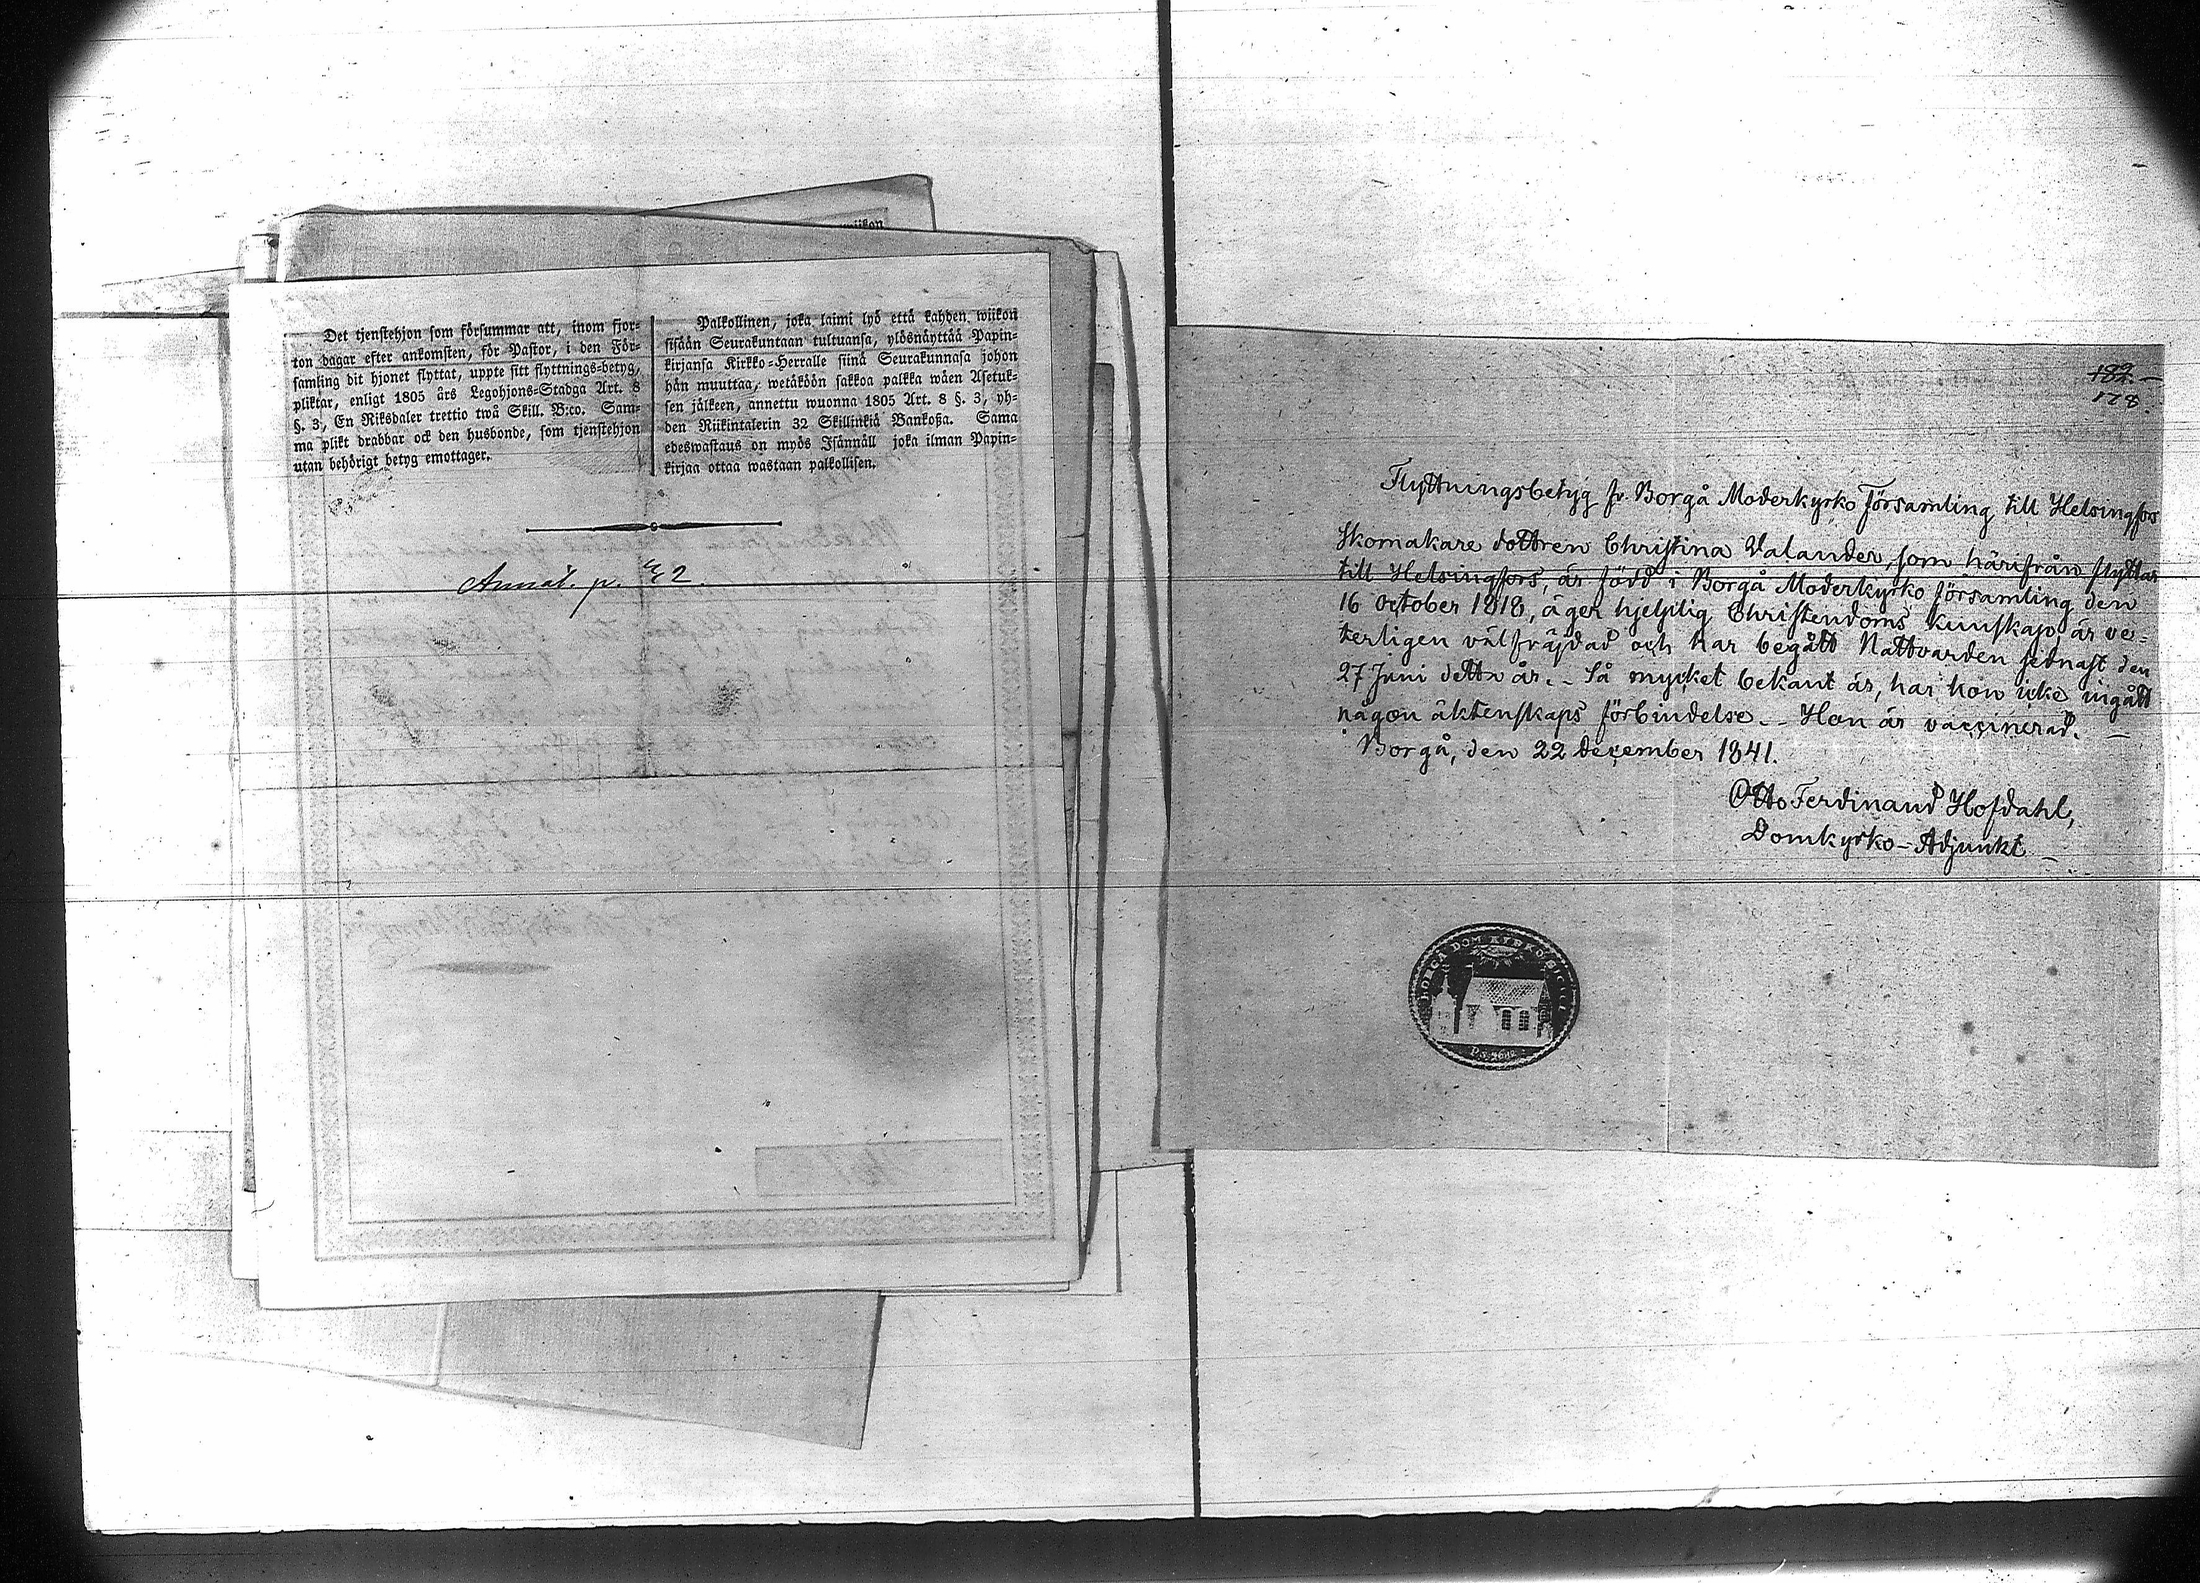 wiikon
Det tjenstehjon som försummar att, inom fjor-
ton dagar efter ankomsten, för Pastor, i den För-
samling dit hjonet flyttat, uppte sitt flyttnings-betyg,
pliktar, enligt 1805 års Legohjons-Stadga Art. 8
§. 3, En Riksdaler trettio twå Skill. B:co. Sam-
ma plikt drabbar ock den husbonde, som tjenstehjon
utan behörigt betyg emottager.
Palkollinen, joka laimi lyö että kahden wiikon
sisään Seurakuntaan tultuansa, ylösnäyttää Papin-
kirjansa Kirkko-Herralle siinä Seurakunnasa johon
hän muuttaa, wetäköön sakkoa palkka wäen Asetuk-
sen jälkeen, annettu wuonna 1805 Art. 8 §. 3, yh-
den Riikintalerin 32 Skillinkiä Bankoßa. Sama
edeswastaus on myös Isännäll joka ilman Papin-
kirjaa ottaa wastaan palkollisen.
Anmält. p. 2.
182.
178.
Flyttningsbetyg fr. Borgå Moderkyrko församling till Helsingfors
Skomakare dottren Christina Valander, som härifrån flyttar
till Helsingfors, är född i Borgå Moderkyrko församling den
16 October 1818, äger hjelplig Christendoms kunskap, är ve-
terligen välfräjdad och har begått Nattvarden sednast den
27 Juni detta år. - Så mycket bekant är, har hon icke ingått
någon äktenskaps förbindelse. - Hon är vaccinerad. -
Borgå, den 22 december 1841.
Otto Ferdinand Hofdahl,
Domkyrko-Adjunkt -
BORGÅ DOM KYRKO SIGILL